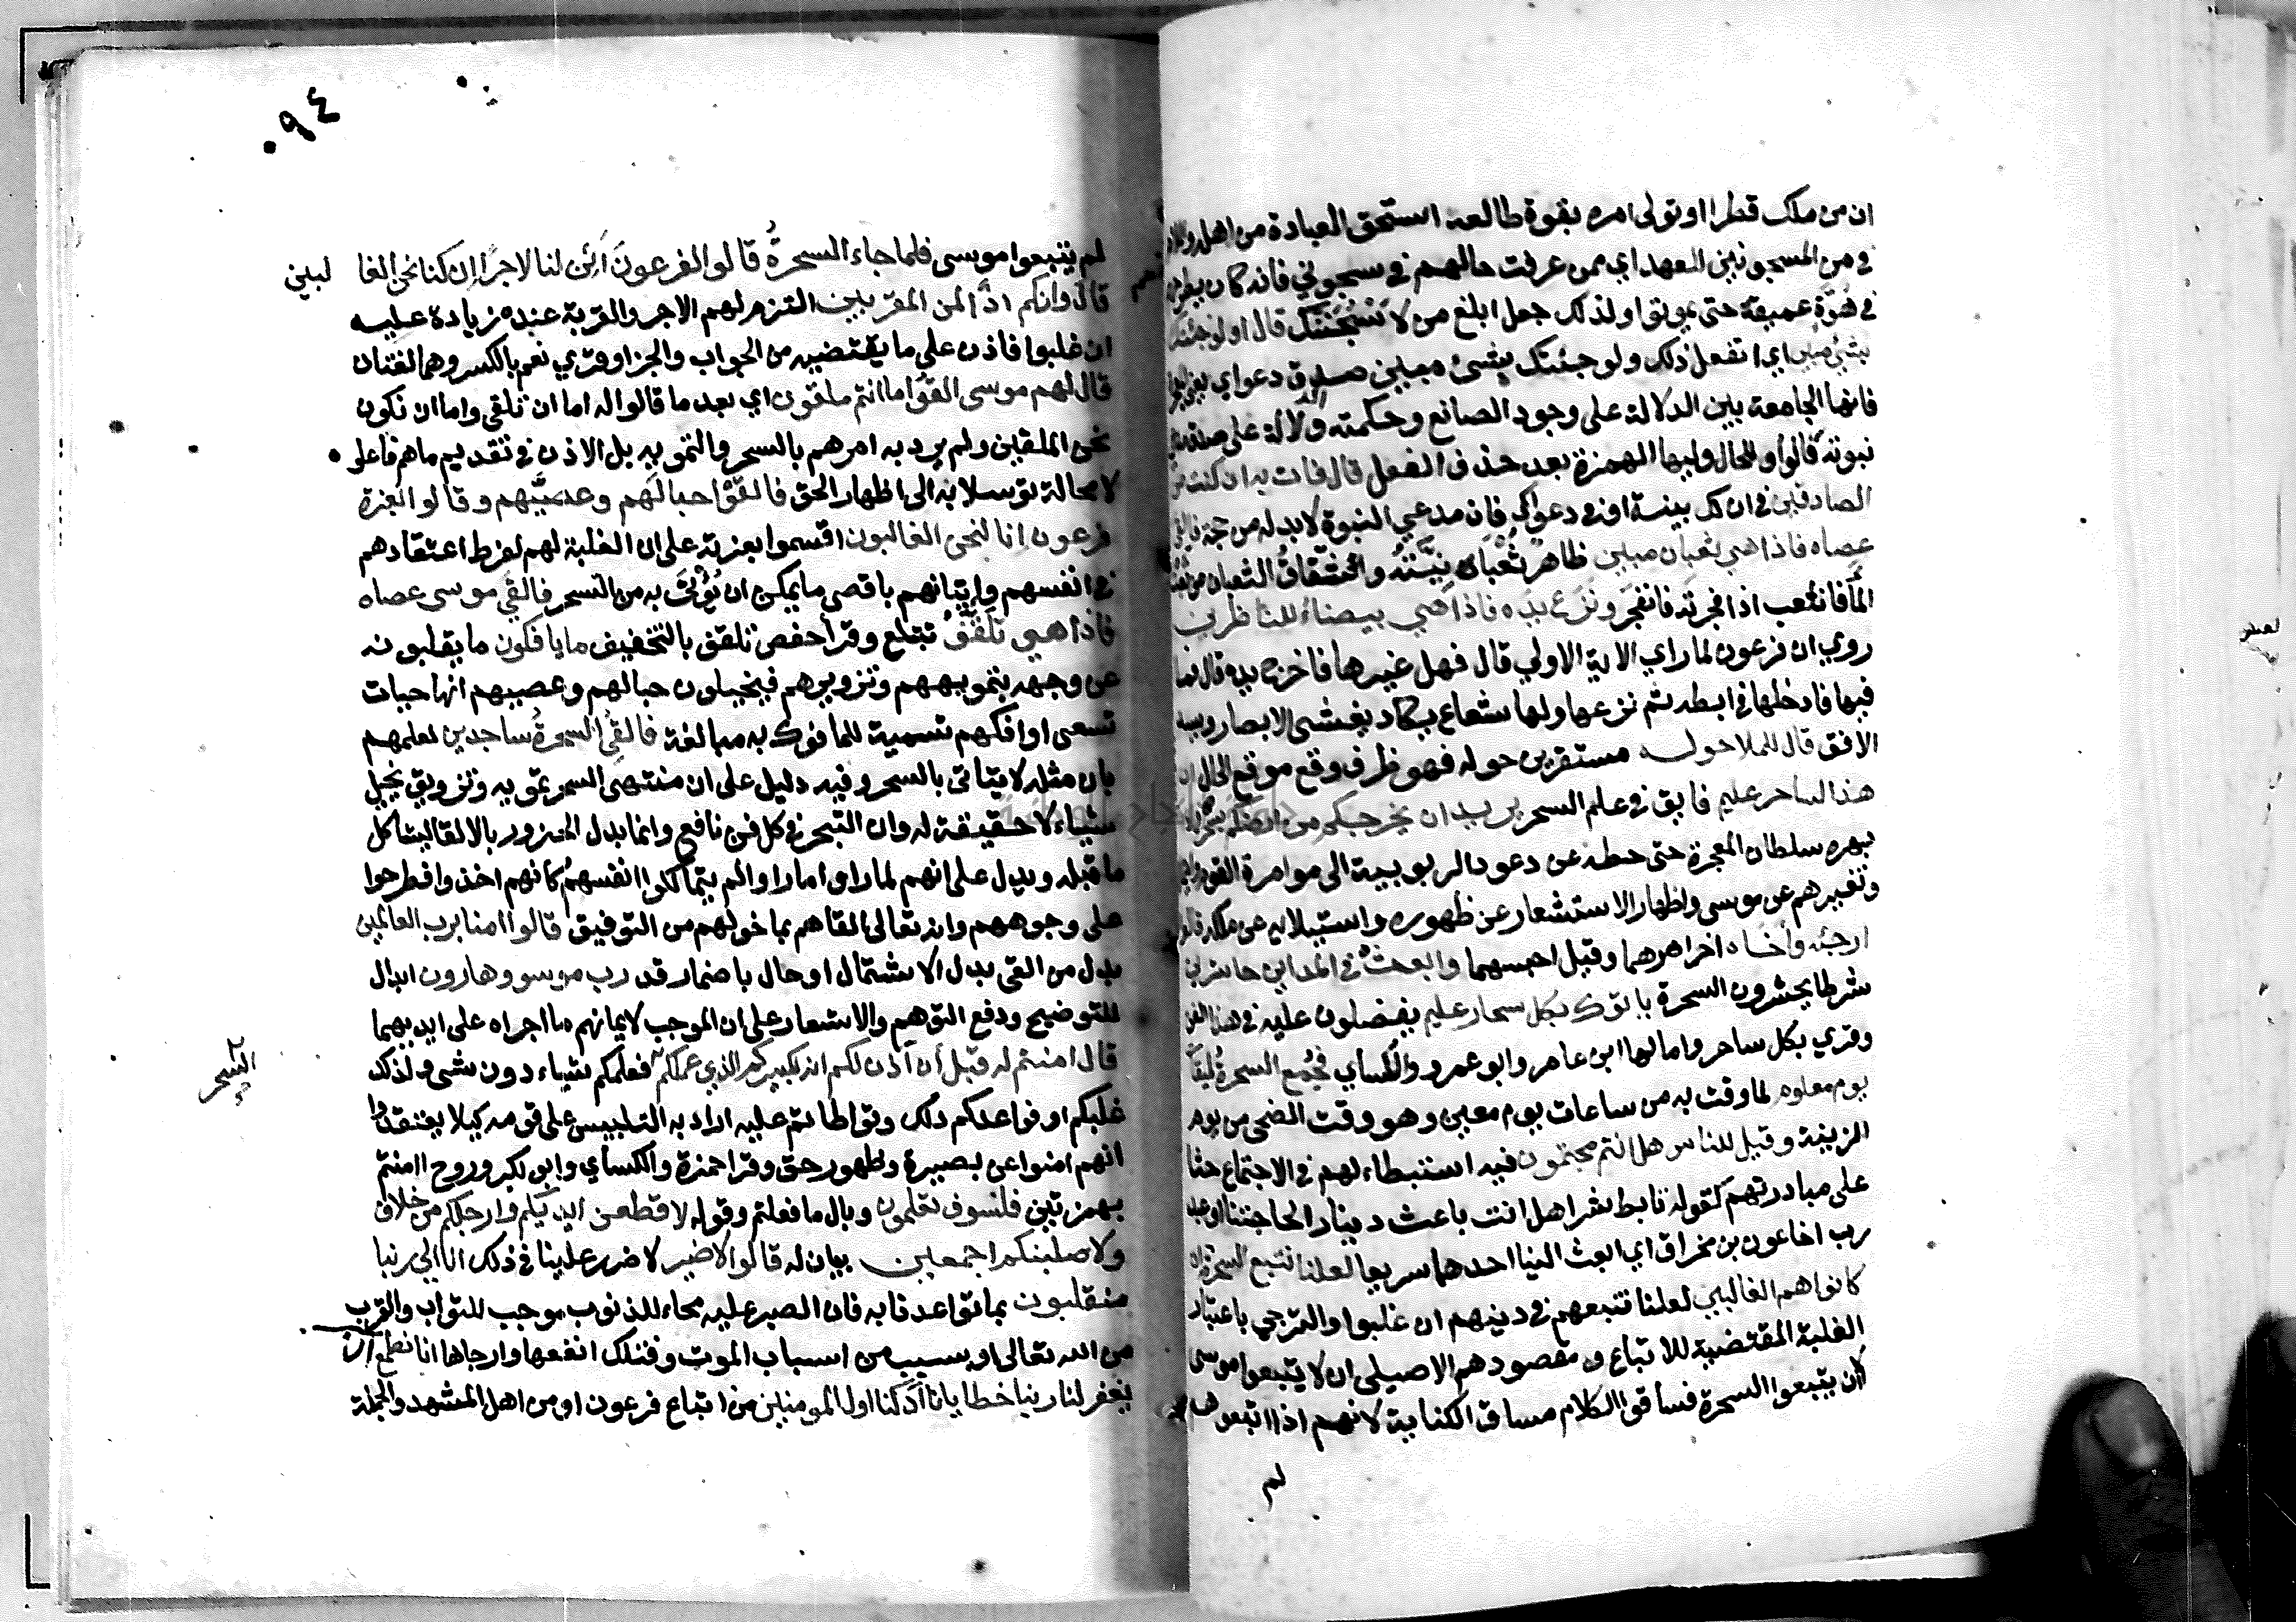 ان من ملك قطرا او تولى امره بقوة طالعه استحق العبادة من اهله واللام
في من المسجونين للعهد اي ممن عرفت حالهم في سجوني فانه كان يطرحهم
في هُوّةٍ عميقة حتى يموتوا ولذلك جعل ابلغ من لاسجننك قال اولو جئتك
بشئ مبين اي اتفعل ذلك ولو جئتك بشئ مبين صدق دعواي يعني المعجزة
فانها الجامعة بين الدلالة على وجود الصانع وحكمته والدلالة على صدق مدعي
نبوته قالوا وللحال وليها الهمزة بعد حذف الفعل قال فات به ان كنت من
الصادقين في ان لك بينة او في دعواك فان مدعي النبوة لابد له من حجة فالقى
عصاه فاذا هي ثعبان مبين ظاهر ثُعْبانيَّتُه واشتقاقُ الثعبان من ثعبت
الما فانثعب اذا فجرته فانفجر ونزع يده فاذا هي بيضاءُ للناظرين
روي ان فرعون لما راي الاية الاولي قال فهل غيرها فاخرج يده قال فما
فيها فادخلها في ابطه ثم نزعها ولها شعاع يكاد يغشى الابصار ويسد
الافق قال للملا حوله مستقرين حوله فهو ظرف وقع موقع الحال ان
هذا لساحر عليم فايق في علم السحر يريد ان يخرجكم من ارضكم بسحره
بهره سلطان المعجزة حتى حطه عن دعوه الربوبية الى موامرة القوم
وتنفيرهم عن موسى واظهار الاستشعار عن ظهوره واستيلايه على ملكه قالوا
ارجئه وأخاه اخر امرهما وقيل احبسهما وابعث في المداين حاشرين
شرطا يحشرون السحرة ياتوك بكل سحار عليم يفضلون عليه في هذا الفن
وقري بكل ساحر وامالها ابن عامر وابو عمرو والكساي فجُمع السحرةُ لميقات
يوم معلوم لما وقت به من ساعات يوم معين وهو وقت الضحى من يوم
الزينة وقيل للناس هل انتم مجتمعون فيه استبطاء لهم في الاجتماع حثا
على مبادرتهم كقوله تابط شرا هل انت باعث دينار لحاجتنا او عبد
رب اخا عون بن مخراق اي ابعث الينا احدهما سريعا لعلنا نتبع السحرة ان
كانوا هم الغالبين لعلنا نتبعهم في دينهم ان غلبوا والترجي باعتبار
الغلبة المقتضية للاتباع ومقصودهم الاصيلي ان لا يتبعوا موسى
لاان يتبعوا السحرة فساقوا الكلام مساق الكناية لانهم اذا اتبعوهم
لم
٠٩٤
لم يتبعوا موسى فلما جاء السحرةُ قالوا لفرعونَ أئن لنا لاجرًا ان كنا نحن الغالبين
قال وانكم اذًا لمن المقربين التزم لهم الاجر والقربة عنده زيادة عليه
ان غلبوا فاذن على ما يقتضيه من الجواب والجزا وقري نعم بالكسر وهما لغتان
قال لهم موسى القوا ما انتم ملقون اي بعد ما قالوا له اما ان تلقى واما ان نكون
نحن الملقين ولم يرد به امرهم بالسحر والتمويه بل الاذن في تقديم ماهم فاعلو
لا محالة توسلا به الى اظهار الحق فالقَوْا حبالَهم وعصيَّهم وقالوا بعزة
فرعون انا لنحن الغالبون اقسموا بعزته على ان الغلبة لهم لفرط اعتقادهم
في انفسهم واتيانهم باقصى ما يمكن ان يُؤتى به من السحر فالقَي موسى عصاه
فاذا هي تلقَّفُ تبتلع وقرا حفص تلقف بالتخفيف ما يافكون ما يقلبونه
عن وجهه بتمويههم وتزويرهم فيخيلون حبالهم وعصيهم انها حيات
تسعى او افكهم تسمية للمافوك به مبالغة فالقي السحرةُ ساجدين لعلمهم
بان مثله لا يتاتى بالسحر وفيه دليل على ان منتهى السحر تمويه وتزويق يخيل
شياء لا حقيقة له وان التبحر في كل فن نافع وانما بدل الخرور بالالقا ليشاكل
ما قبله ويدل على انهم لما راوا ما راوا لم يتمالكوا انفسهم كانهم اخذوا فطرحوا
على وجوههم وانه تعالى القاهم بما خولهم من التوفيق قالوا امنا برب العالمين
بدل من القى بدل الاشتمال او حال باضمار قد رب موسى وهارون ابدال
للتوضيح ودفع التوهم والاشعار على ان الموجب لايمانهم ما اجراه على ايديهما
قال امنتم له قبل أن آذن لكم انه لكبيركم الذي علمكم فعلمكم شياء دون شى ولذلك
السحر
غلبكم او فواعدكم ذلك وتواطاتم عليه اراد به التلبيس على قومه كيلا يعتقدوا
انهم امنوا عن بصيرة وظهور حق وقرا حمزة والكساي وابو بكر وروح اامنتم
بهمزتين فلسوف تعلمون وبال ما فعلتم وقوله لاقطعن ايديَكم وارجلكم من خلاف
ولاصلبنكم اجمعين بيان له قالوا لا ضير لا ضرر علينا في ذلك انا الي ربنا
منقلبون بما تواعدنا به فان الصبر عليه محاء للذنوب موجب للثواب والقرب
من الله تعالى او بسبب من اسباب الموت وقتلك انفعها وارجاها انا نطمع ان
يغفر لنا ربنا خطايانا أن كنا اول المومنين من اتباع فرعون او من اهل المشهد والجملة